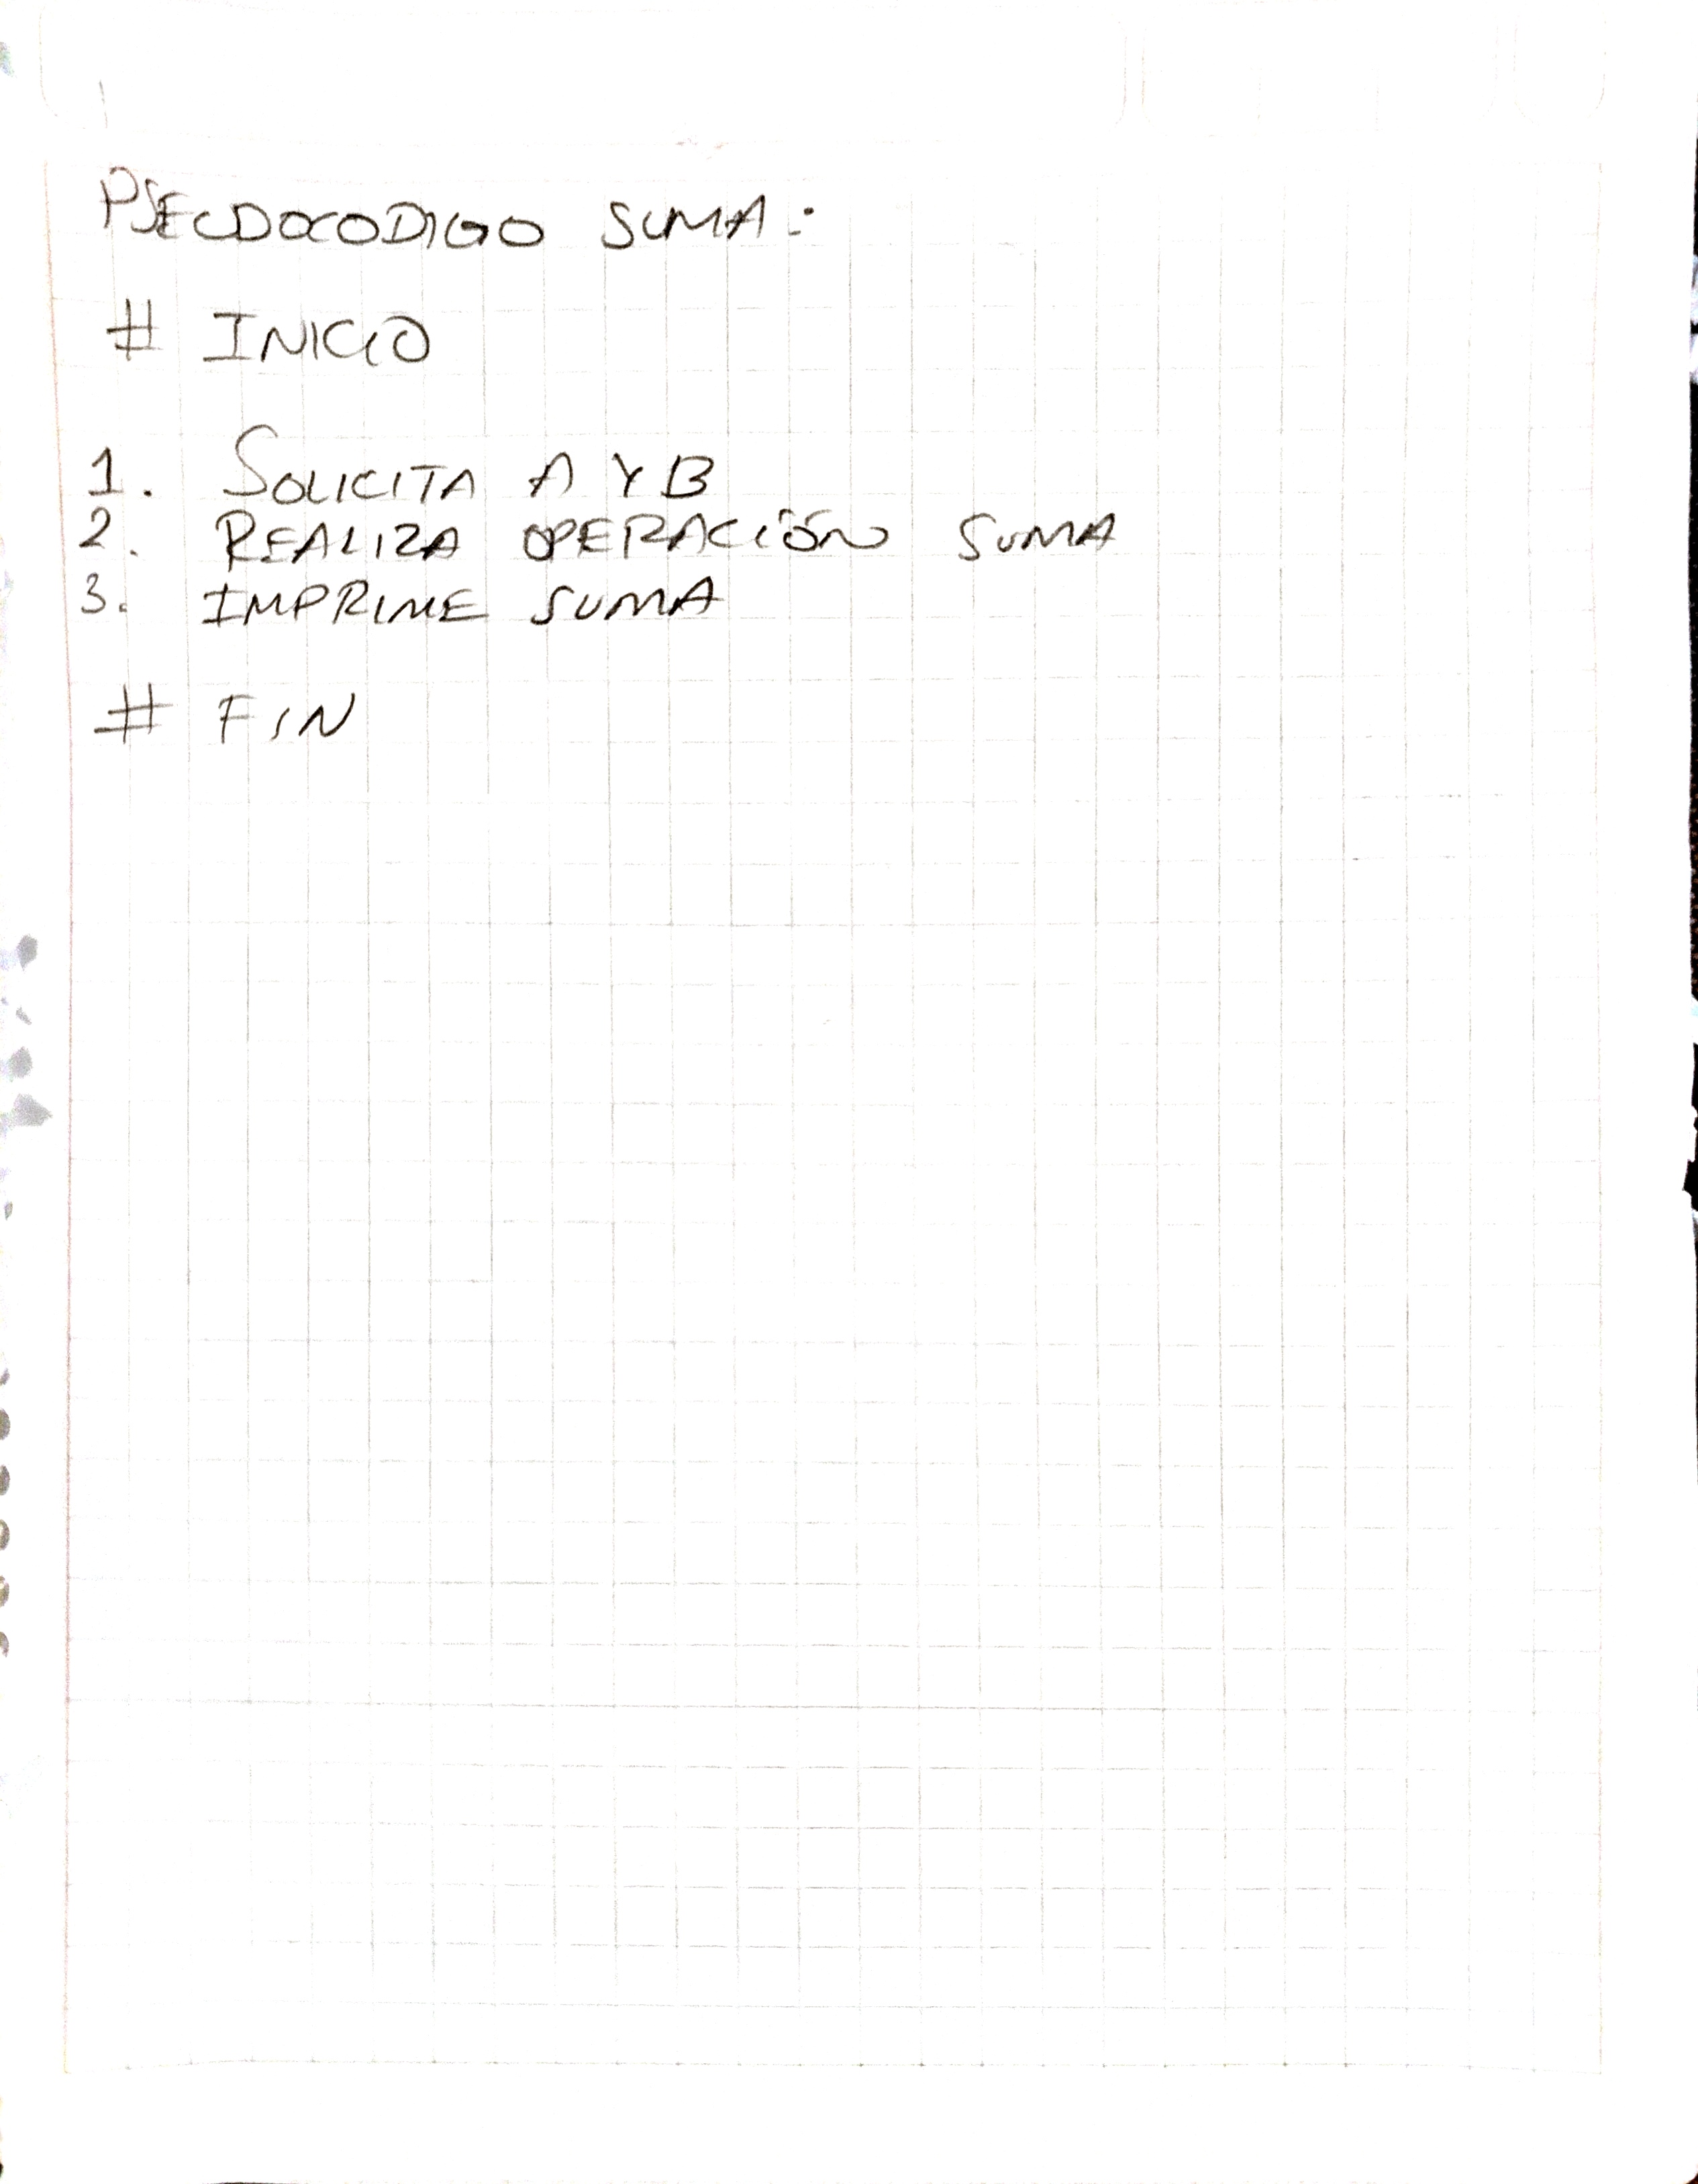 PSEUDOCODIGO SUMA:
# INICIO
1. SOLICITA A Y B
2. REALIZA OPERACIÓN SUMA
3. IMPRIME SUMA
# FIN